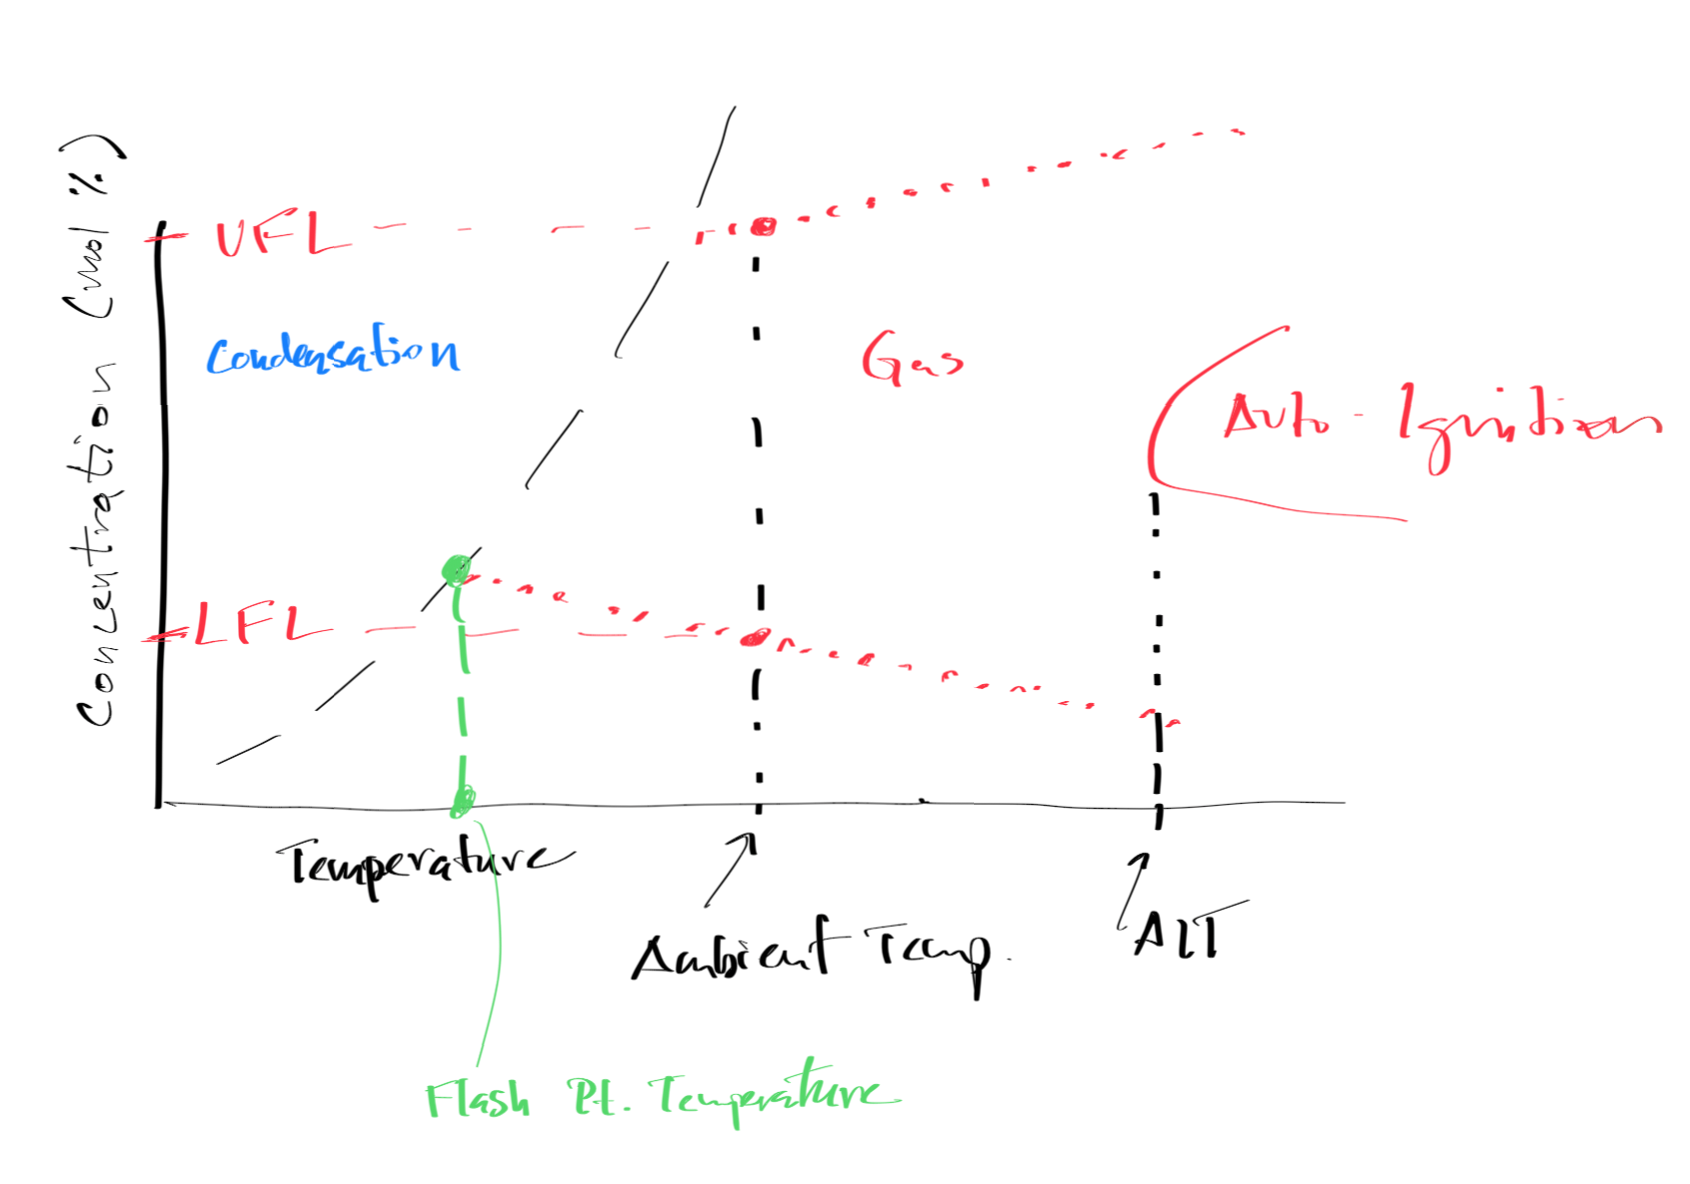 Concentration (mol %)
UFL
Condensation
Gas
Auto-Ignition
LFL
Temperature
Ambient Temp.
AIT
Flash Pt. Temperature